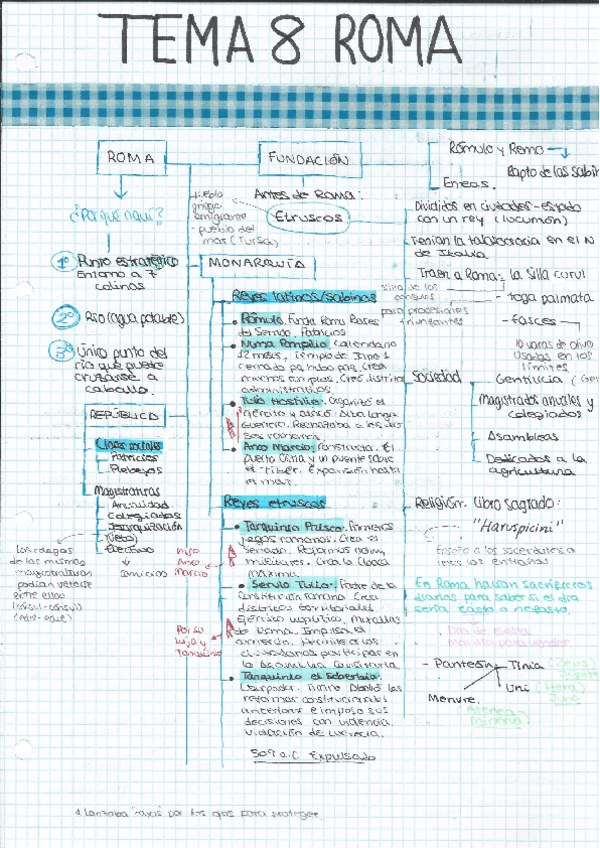 TEMA 8 ROMA
ROMA
¿Por que aquí?
1º Punto estratégico
Entorno a 7
colinas
2º Rio (agua potable)
3º Único punto del
río que puede
cruzarse a
caballo.
REPÚBLICA
Clases sociales
Patricios
Plebeyos
Magistraturas
Anualidad
Colegiados
Jerarquización
(veto)
Electivo
comicios
Los colegas
de las mismas
magistraturas
podían vetarse
entre ellos
(cónsul-cónsul)
FUNDACIÓN
Rómulo y Remo →
Rapto de las sabin
Eneas.
Antes de Roma:
Etruscos
pueblo
griego
emigrante
- pueblo del
mar (Tursa)
Divididos en ciudades-estado
con un rey (lucumón)
Tenían la talasocracia en el N
de Italia.
Traen a Roma: la silla curul
silla de los
consules
- toga palmata
para procesiones
triunfantes
- fasces
varas de olivo
usadas en los
límites
Sociedad
Gentilicia
Magistrados anuales y
colegiados
Asambleas
Dedicados a la
agricultura
Religión. Libro sagrado:
"Haruspicini"
Enseña a los sacerdotes a
leer las entrañas
En Roma hacían sacrificios
diarios para saber si el día
sería fasto o nefasto.
Día de fiesta
- Panteón
Tinia (Zeus)
Uni (Hera)
Menure.
Atenea
Minerva
MONARQUÍA
Reyes latinos/sabinos
Rómulo. Funda Roma. Bases
del Senado. Patricios
Numa Pompilio. Calendario
12 meses. Templo de Jano
cerrado
Creó distritos
administrativos.
Tulio Hostilio. Organizó el
ejército y atacó Alba Longa
Guerrero. Rechazaba a los dio
ses romanos.
Anco Marcio. Constructor. El
puerto Ostia y un puente sobre
el Tíber. Expansión hasta
el mar.
Reyes etruscos
Tarquinio Prisco. Primeros
juegos romanos. Crea el
Senado. Reformas adm.
militares. Crea la Cloaca
máxima.
Hijo
Anco
Marcio
Servio Tulio. Padre de la
Constitución romana. Crea
distritos territoriales
Ejército hoplítico. Murallas
de Roma. Impulsa el
armesán. Permite a los
ciudadanos participar en
la Asamblea Centuriada.
Por su
hija y
Tarquinio
Tarquinio el Soberbio.
Usurpador. Tirano. Abolió las
reformas constitucionales
anteriores e impuso sus
decisiones con violencia.
Violación de Lucrecia.
509 a.C. Expulsado
Lanzaba "rayos" por los ojos para proteger.